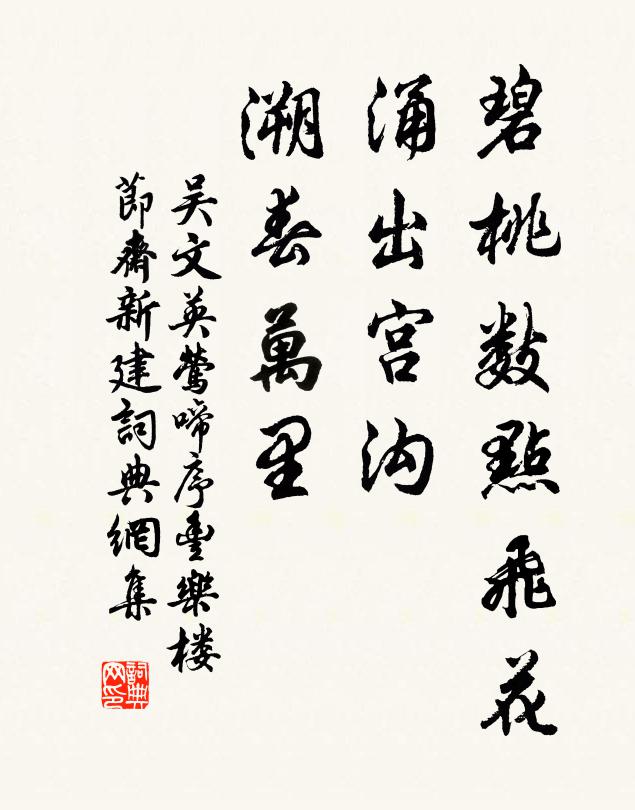 碧桃数點飛花
涌出宫沟
溯春萬里
吴文英莺啼序豊樂楼
節齋新建詞典網集
詞典网印